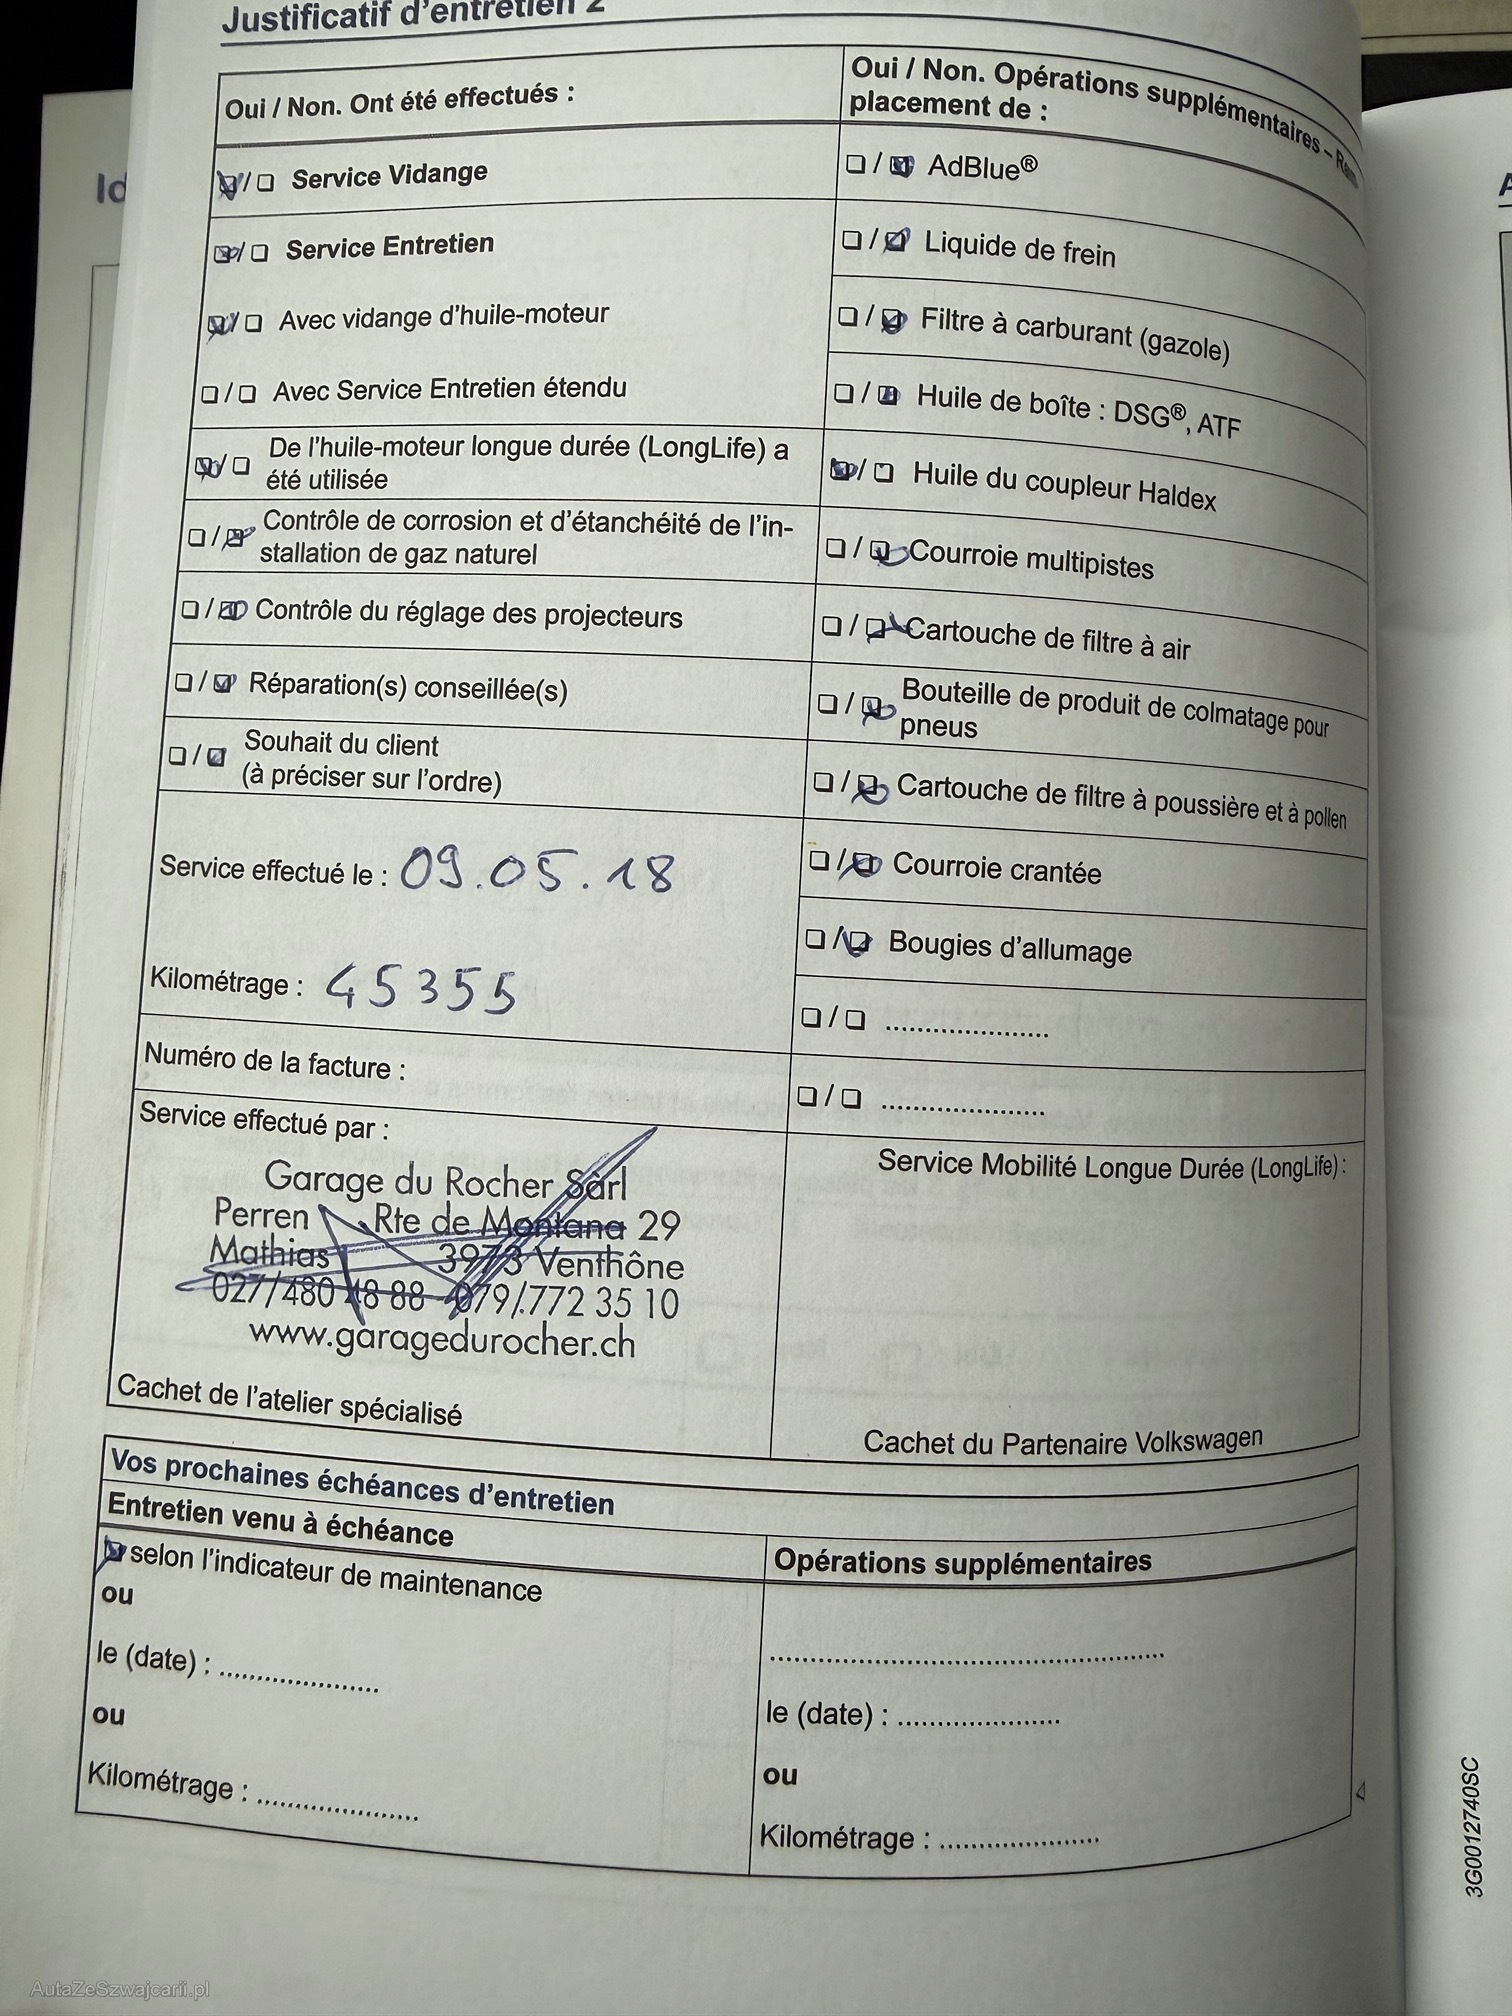 Justificatif d'entretien 2
Oui / Non. Ont été effectués :
❏/❏ Service Vidange
❏/❏ Service Entretien
❏/❏ Avec vidange d'huile-moteur
❏/❏ Avec Service Entretien étendu
❏/❏ De l'huile-moteur longue durée (LongLife) a
été utilisée
❏/❏ Contrôle de corrosion et d'étanchéité de l'in-
stallation de gaz naturel
❏/❏ Contrôle du réglage des projecteurs
❏/❏ Réparation(s) conseillée(s)
❏/❏ Souhait du client
(à préciser sur l'ordre)
Service effectué le : 09.05.18
Kilométrage : 45355
Numéro de la facture :
Service effectué par :
Garage du Rocher Sàrl
Perren Rte de Montana 29
Mathias 3973 Venthône
027/480 48 88 - 079/.772 35 10
www.garagedurocher.ch
Cachet de l'atelier spécialisé
Oui / Non. Opérations supplémentaires –
placement de :
❏/❏ AdBlue®
❏/❏ Liquide de frein
❏/❏ Filtre à carburant (gazole)
❏/❏ Huile de boîte : DSG®, ATF
❏/❏ Huile du coupleur Haldex
❏/❏ Courroie multipistes
❏/❏ Cartouche de filtre à air
❏/❏ Bouteille de produit de colmatage pour
pneus
❏/❏ Cartouche de filtre à poussière et à pollen
❏/❏ Courroie crantée
❏/❏ Bougies d'allumage
❏/❏ .....................
❏/❏ .....................
Service Mobilité Longue Durée (LongLife) :
Cachet du Partenaire Volkswagen
Vos prochaines échéances d'entretien
Entretien venu à échéance
❏ selon l'indicateur de maintenance
ou
le (date) : .....................
ou
Kilométrage : .....................
Opérations supplémentaires
..................................................
le (date) : .....................
ou
Kilométrage : .....................
3G0012740SC
AutaZeSzwajcarii.pl